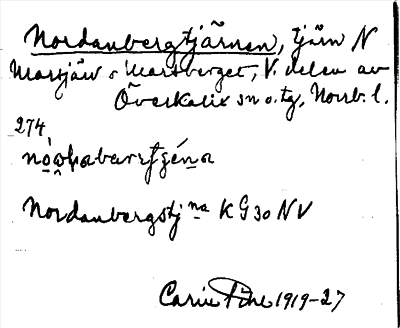 Nordanbergtjärnen, tjärn N
Marsjärv o Marsberget, V. delen av
Överkalix sn o. tg, Norrb. l.
274
Nordanbergstj na KG30 NV
Carin Pihl 1919-27